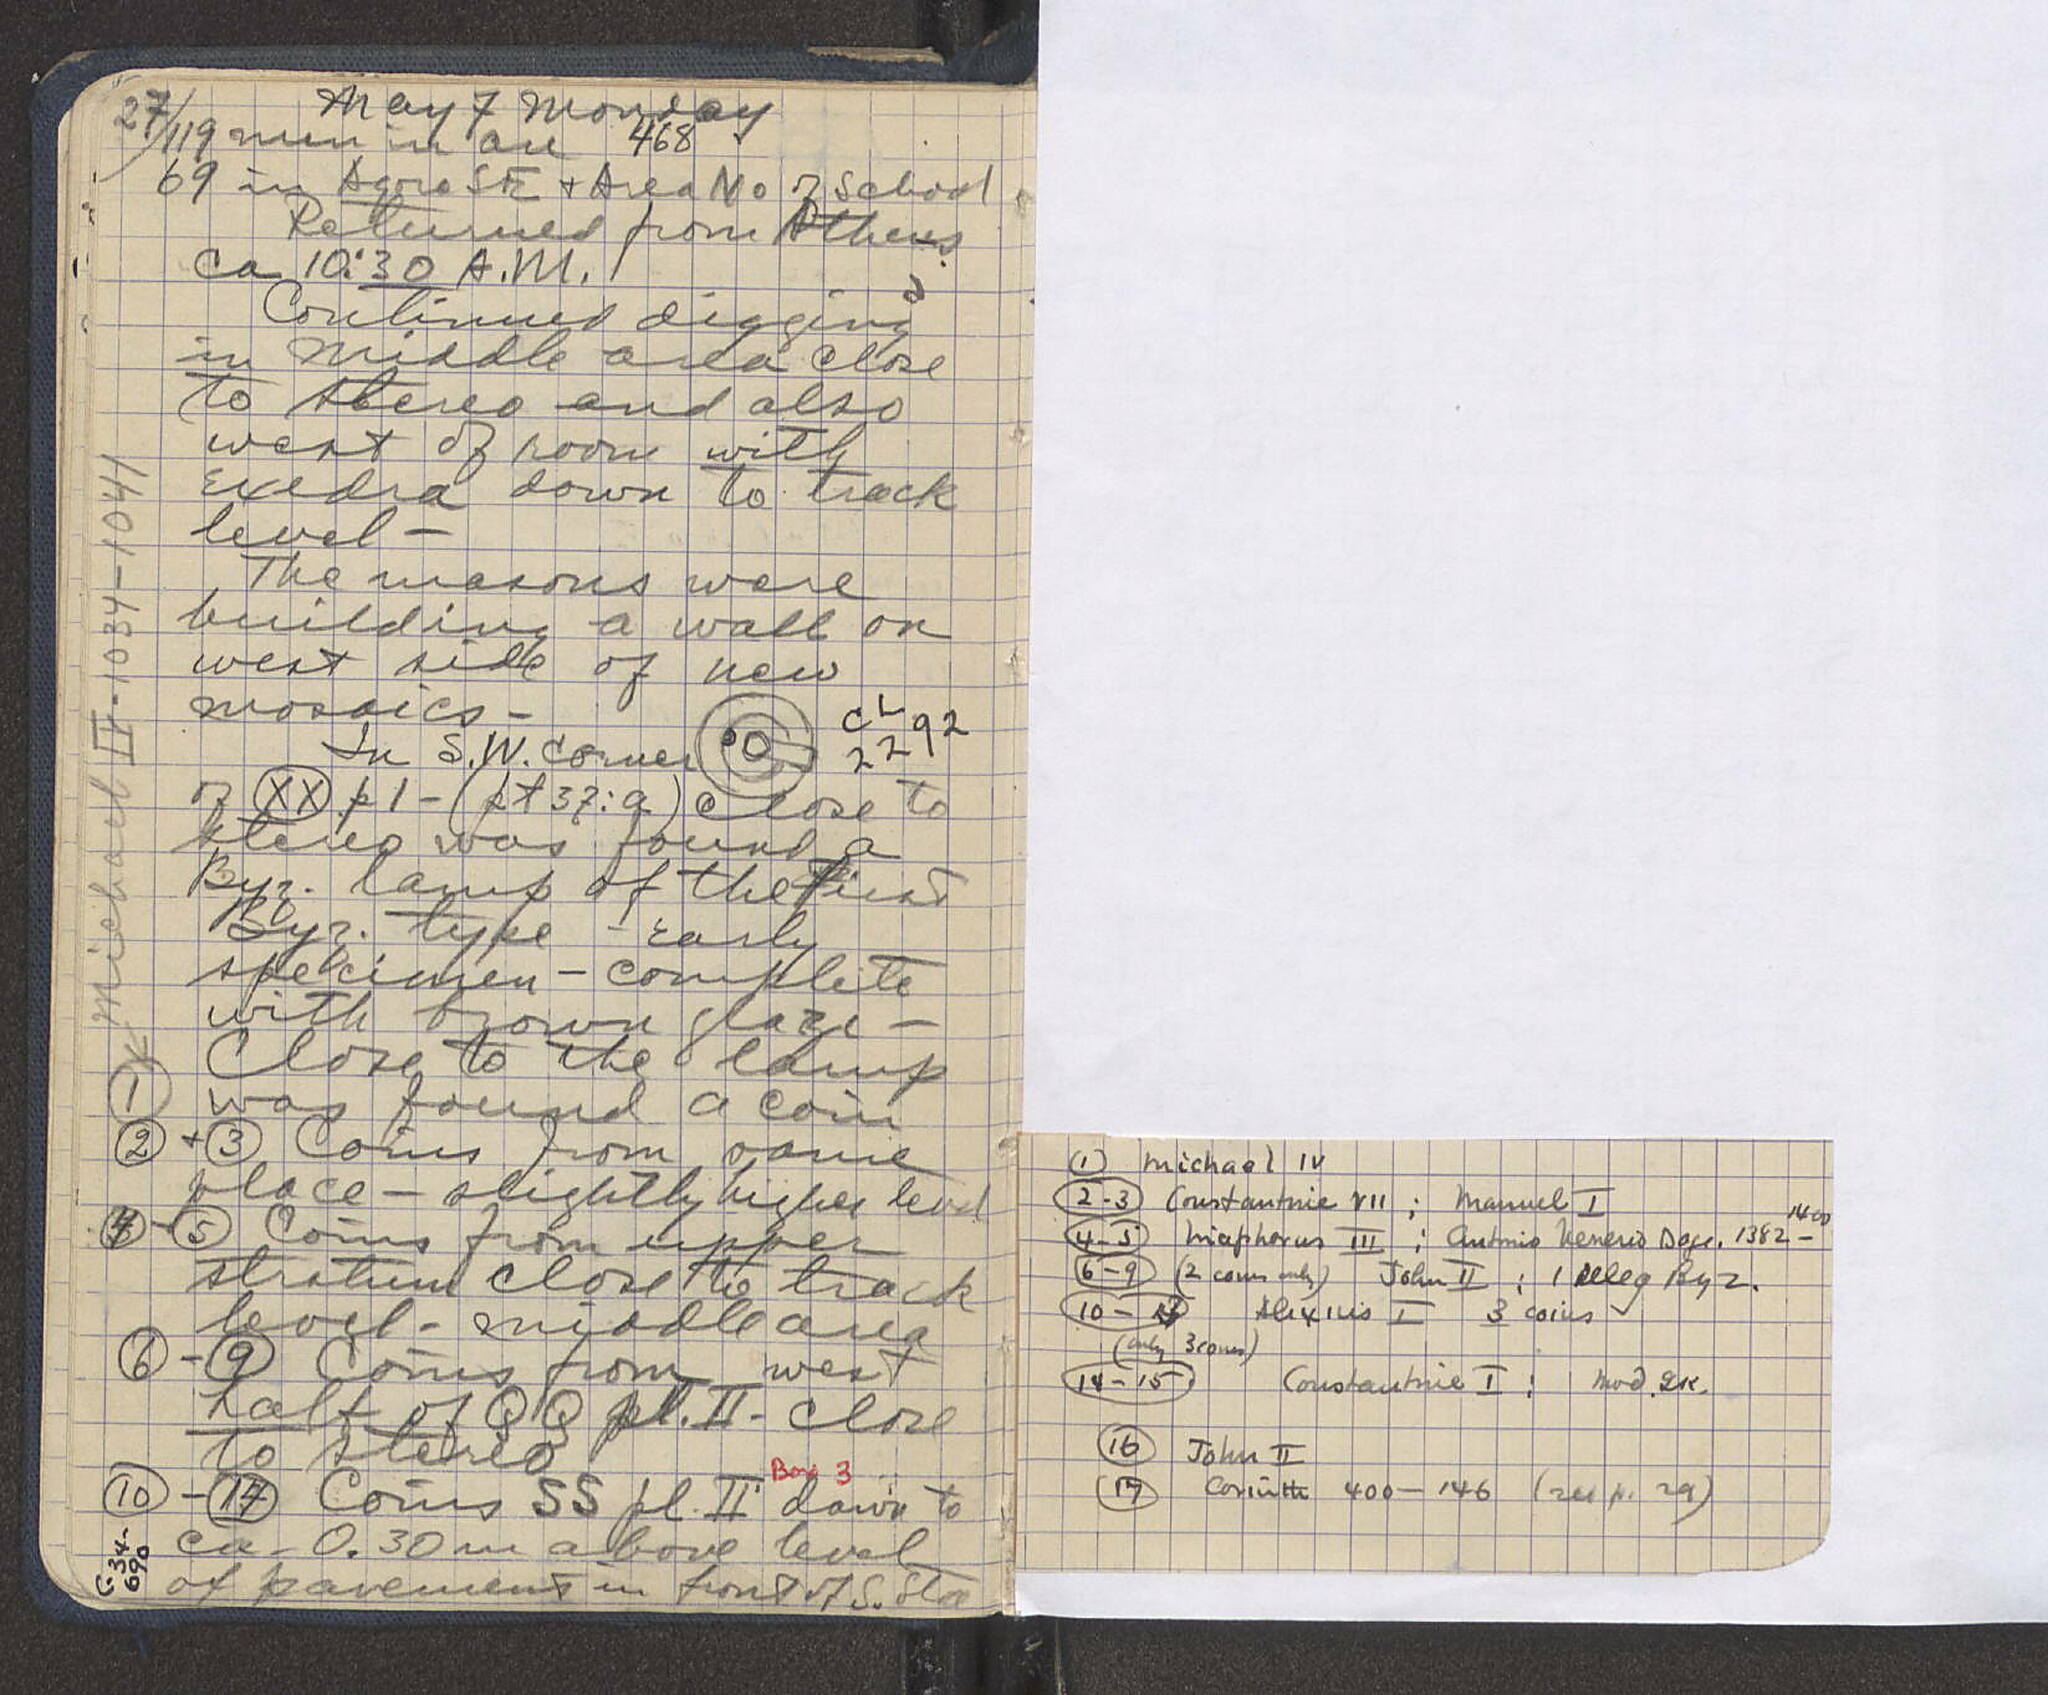 May 7 Monday
27/119 men in all 468
69 in Agora SE + Area No of School
Returned from Athens
ca 10:30 A.M.
Continued digging
in middle area close
to stereo and also
west of room with
Exedra down to track
level –
The masons were
building a wall on
west side of new
mosaics –
In S.W. corner
CL
2292
of XX pl – (pt 37:a) close to
stereo was found a
Byz. lamp of the first
Byz. type – early
specimen – complete
with brown glaze –
Close to the lamp
1 was found a coin
Michael IV - 1034-1041
2 + 3 Coins from same
place – slightly higher level
4 - 5 Coins from upper
stratum close to track
level – middle area
6 - 9 Coins from west
half of QQ pl. II – close
to stereo
Box 3
10 - 17 Coins SS pl. II down to
ca. 0.30 m above level
of pavement in front of S. Stoa
C-34-
690
1 Michael IV
2-3 Constantine VII ; Manuel I
4-5 Nicephorus III ; Antonio Venerio Doge. 1382 - 1400
6-9 (2 coins only) John II ; 1 illeg Byz.
10 - Alexius I 3 coins
(only 3 coins)
14-15 Constantine I ; Mod. Gk.
16 John II
17 Corinth 400 – 146 (see p. 29)